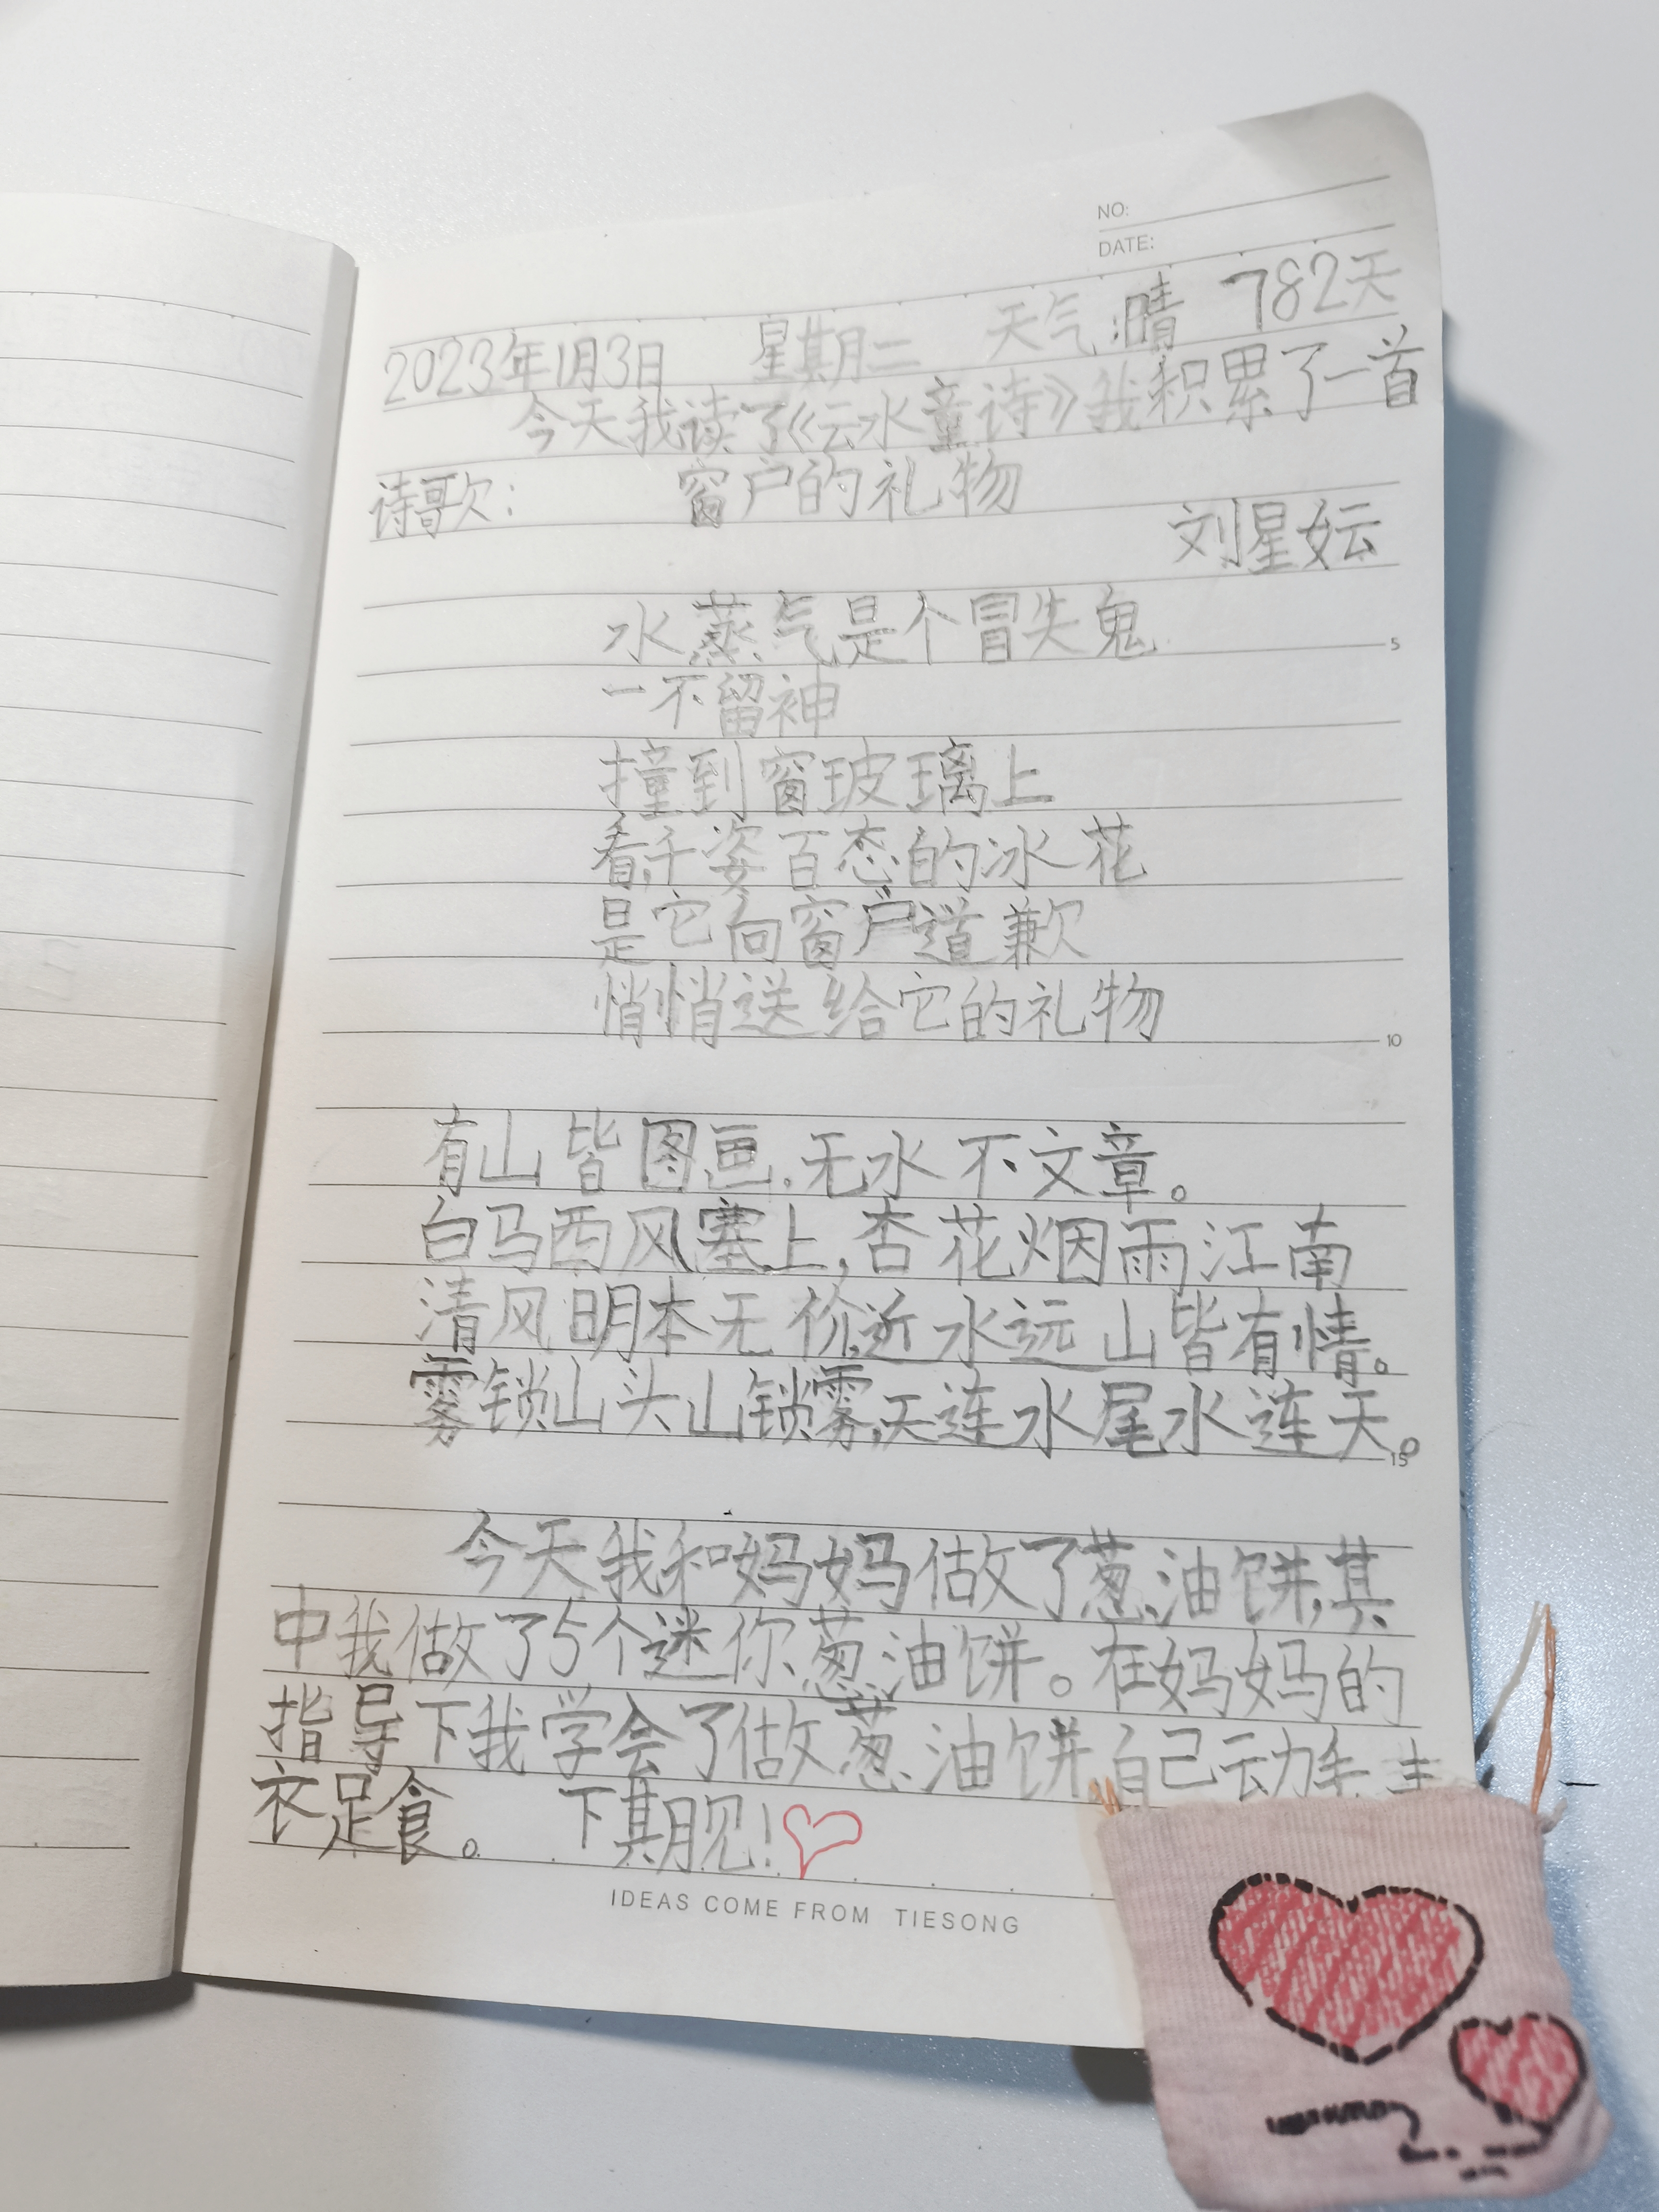 NO:
DATE:
2023年1月3日 星期二 天气:晴 782天
今天我读了《云水童诗》我积累了一首
诗歌: 窗户的礼物
刘星妘
水蒸气是个冒失鬼
一不留神
撞到窗玻璃上
看,千姿百态的冰花
是它向窗户道歉
悄悄送给它的礼物
有山皆图画.无水不文章。
白马西风塞上,杏花烟雨江南
清风明本无价,近水远山皆有情。
雾锁山头山锁雾,天连水尾水连天。
今天我和妈妈做了葱油饼,其
中我做了5个迷你葱油饼。在妈妈的
指导下我学会了做葱油饼,自己动手,丰
衣足食。 下期见!
IDEAS COME FROM TIESONG
5
10
15